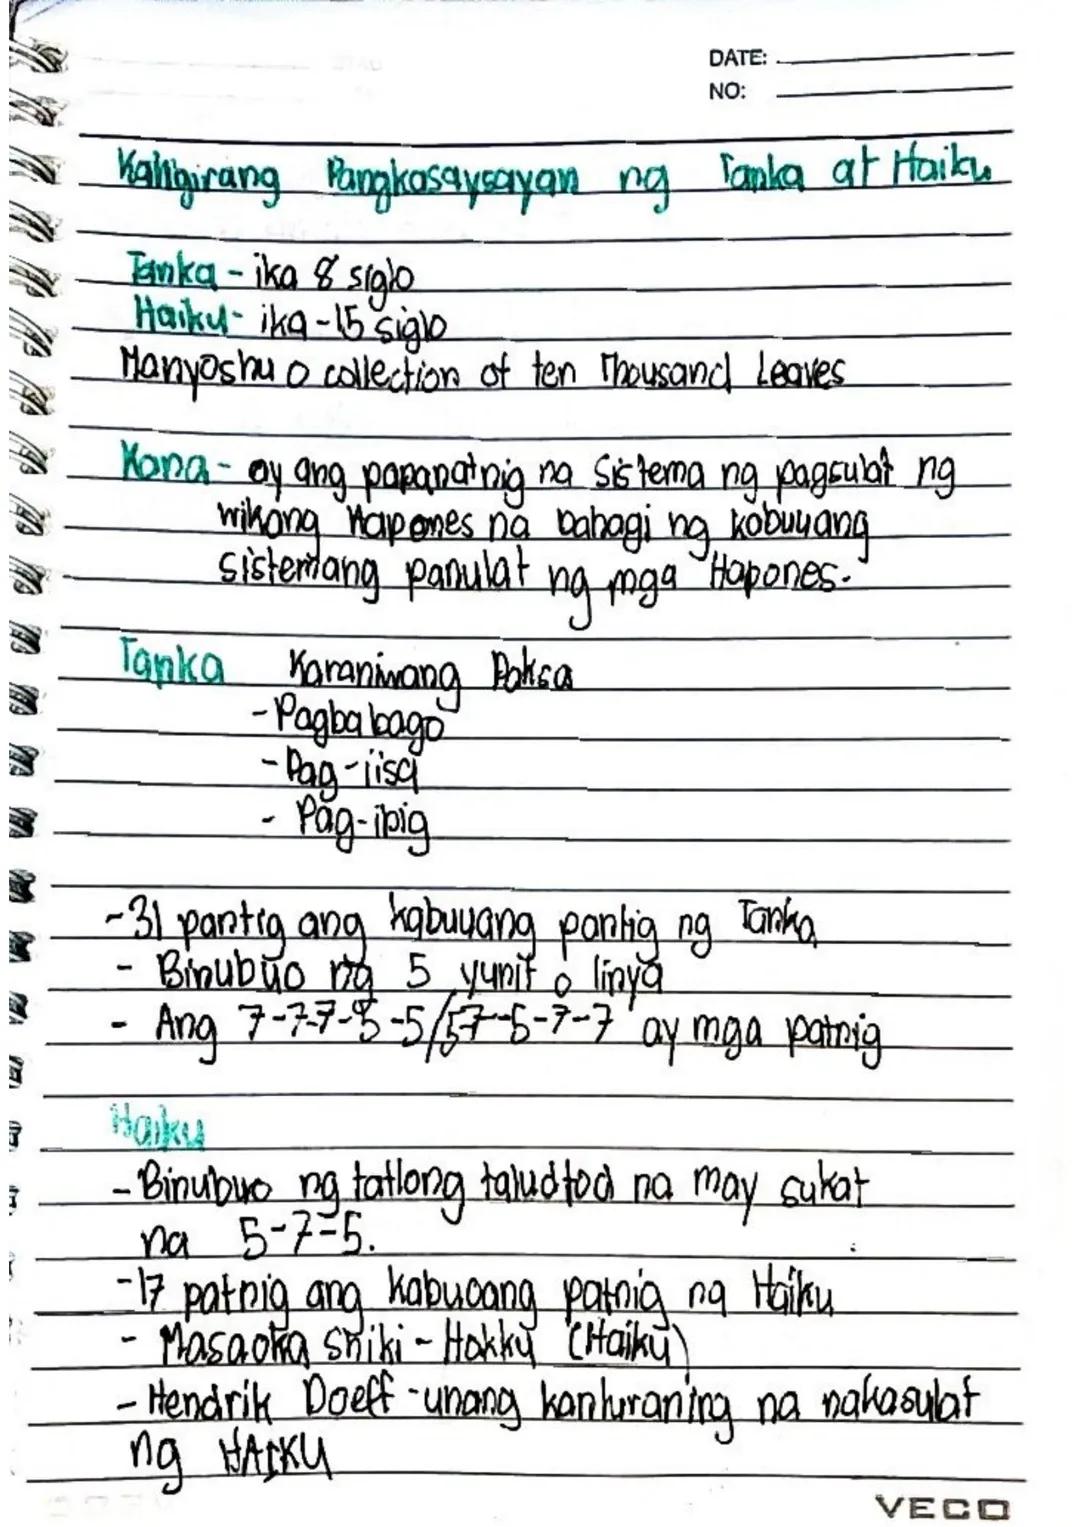 DATE:
NO:
Kaligirang Pangkasaysayan ng Tanka at Haiku
Tanka - ika 8 siglo
Haiku - ika-15 siglo
Manyoshu o collection of ten Thousand Leaves
Kana - ay ang papanatnig na sistema ng pagsulat ng
wikang Hapones na bahagi ng kobuuang
sistemang panulat ng mga Hapones.
Tanka Karaniwang Paksa
- Pagbabago
- Pag-iisa
- Pag-ibig
- 31 pantig ang kabuuang pantig ng Tanka
- Binubuo ng 5 yunit o linya
- Ang 7-7-7-5-5/5-7-5-7-7 ay mga patnig
Haiku
- Binubuo ng tatlong taludtod na may sukat
na 5-7-5.
- 17 patnig ang kabuoang patnig ng Haiku
- Masaoka Shiki - Hokku (Haiku)
- Hendrik Doeff - unang kanluraning na nakasulat
ng HAIKU
VECO